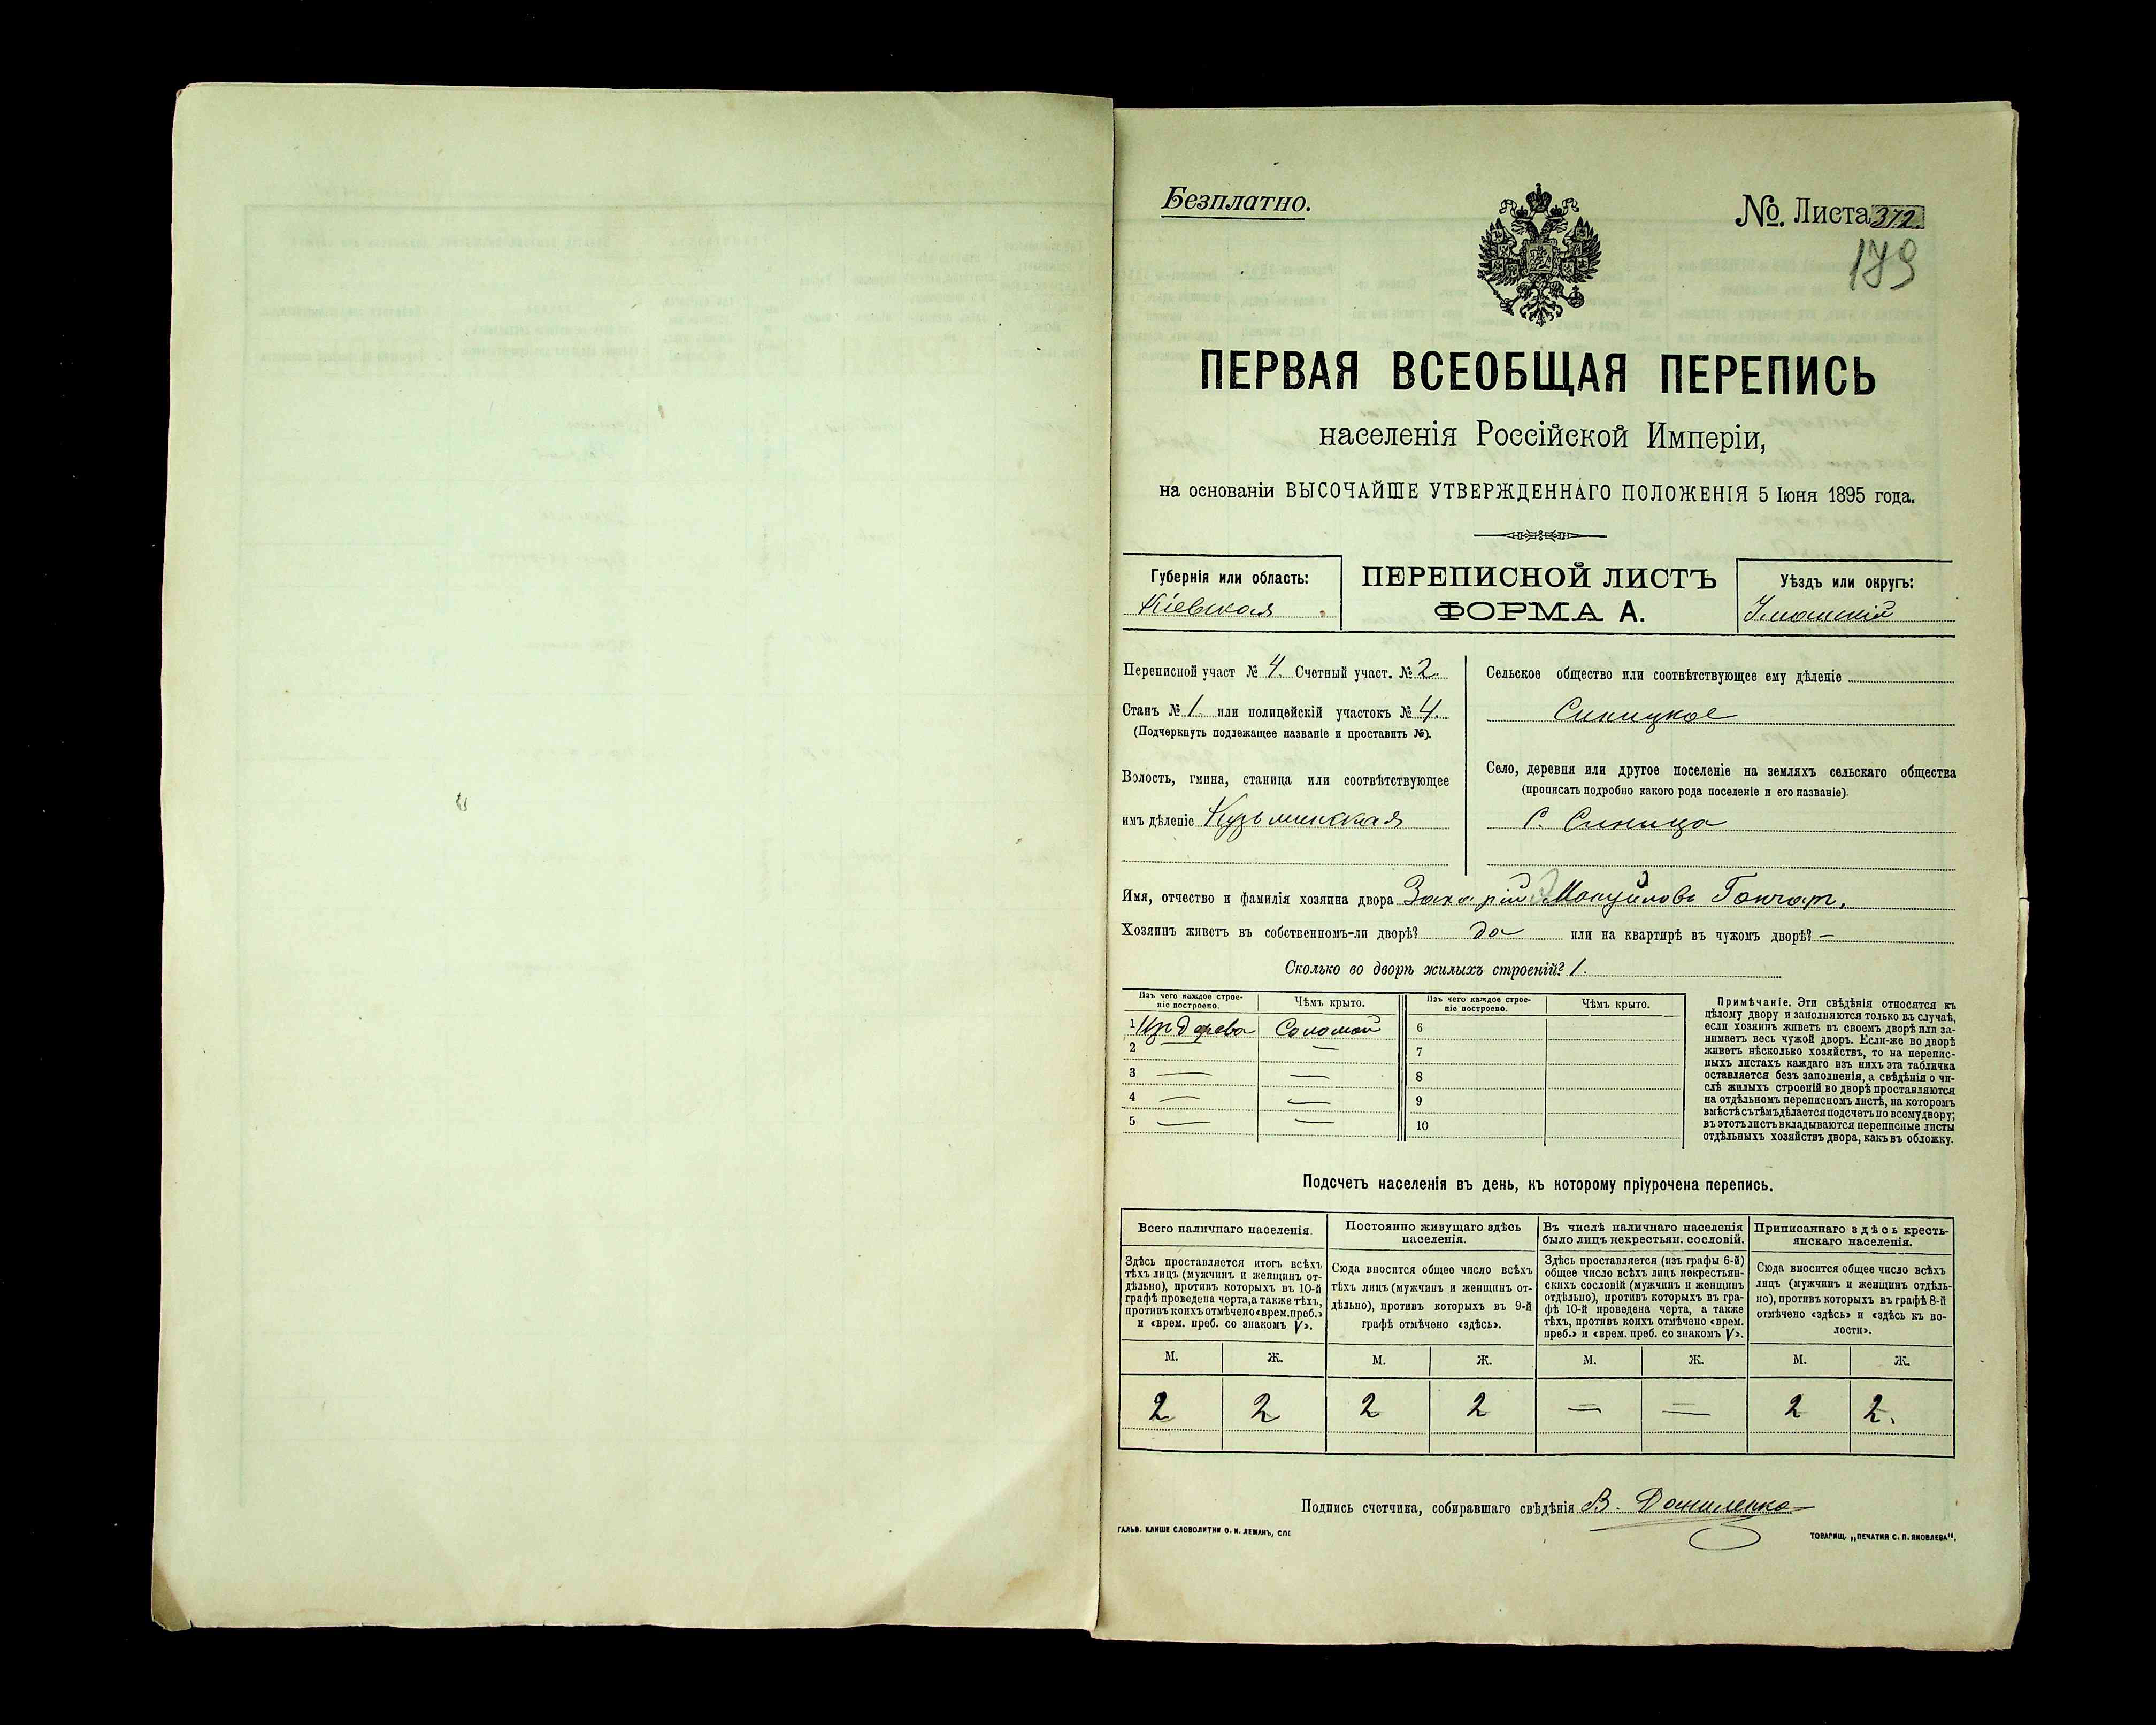 Безплатно.
№. Листа 372.
179
ПЕРВАЯ ВСЕОБЩАЯ ПЕРЕПИСЬ
населенія Россійской Имперіи,
на основаніи ВЫСОЧАЙШЕ УТВЕРЖДЕННАГО ПОЛОЖЕНІЯ 5 Іюня 1895 года.
Губернія или область:
Кіевская
ПЕРЕПИСНОЙ ЛИСТЪ
ФОРМА А.
Уѣздъ или округъ:
Уманскій
Переписной участ № 4. Счетный участ. № 2.
Станъ № 1. или полицейскій участокъ № 4.
(Подчеркнуть подлежащее названіе и проставить №).
Волость, гмина, станица или соотвѣтствующее
имъ дѣленіе Кузьминская
Сельское общество или соотвѣтствующее ему дѣленіе
Синицкое
Село, деревня или другое поселеніе на земляхъ сельскаго общества
(прописать подробно какого рода поселеніе и его названіе).
С. Синица
Имя, отчество и фамилія хозяина двора Захарій Мануйловъ Гончаръ.
Хозяинъ живетъ въ собственномъ-ли дворѣ? да или на квартирѣ въ чужомъ дворѣ? —
Сколько во дворѣ жилыхъ строеній? 1.
Изъ чего каждое строе-
ніе построено.
Чѣмъ крыто.
Изъ чего каждое строе-
ніе построено.
Чѣмъ крыто.
1 Изъ дерева Соломой 6
2 — 7
3 — — 8
4 — — 9
5 — — 10
Примѣчаніе. Эти свѣдѣнія относятся къ
цѣлому двору и заполняются только въ случаѣ,
если хозяинъ живетъ въ своемъ дворѣ или за-
нимаетъ весь чужой дворъ. Если-же во дворѣ
живетъ нѣсколько хозяйствъ, то на перепис-
ныхъ листахъ каждаго изъ нихъ эта табличка
оставляется безъ заполненія, а свѣдѣнія о чи-
слѣ жилыхъ строеній во дворѣ проставляются
на отдѣльномъ переписномъ листѣ, на которомъ
вмѣстѣ съ тѣмъ дѣлается подсчетъ по всему двору;
въ этотъ листъ вкладываются переписные листы
отдѣльныхъ хозяйствъ двора, какъ въ обложку.
Подсчетъ населенія въ день, къ которому пріурочена перепись.
Всего наличнаго населенія.
Здѣсь проставляется итогъ всѣхъ
тѣхъ лицъ (мужчинъ и женщинъ от-
дѣльно), противъ которыхъ въ 10-й
графѣ проведена черта, а также тѣхъ,
противъ коихъ отмѣчено «врем. преб.»
и «врем. преб. со знакомъ V».
Постоянно живущаго здѣсь
населенія.
Сюда вносится общее число всѣхъ
тѣхъ лицъ (мужчинъ и женщинъ от-
дѣльно), противъ которыхъ въ 9-й
графѣ отмѣчено «здѣсь».
Въ числѣ наличнаго населенія
было лицъ некрестьян. сословій.
Здѣсь проставляется (изъ графы 6-й)
общее число всѣхъ лицъ некрестьян-
скихъ сословій (мужчинъ и женщинъ
отдѣльно), противъ которыхъ въ гра-
фѣ 10-й проведена черта, а также
тѣхъ, противъ коихъ отмѣчено «врем.
преб.» и «врем. преб. со знакомъ V».
Приписаннаго здѣсь кресть-
янскаго населенія.
Сюда вносится общее число всѣхъ
лицъ (мужчинъ и женщинъ отдѣль-
но), противъ которыхъ въ графѣ 8-й
отмѣчено «здѣсь» и «здѣсь къ во-
лости».
М. Ж. М. Ж. М. Ж. М. Ж.
2 2 2 2 — — 2 2.
Подпись счетчика, собиравшаго свѣдѣнія В. Даниленко
ГАЛЬВ. КЛИШЕ СЛОВОЛИТНИ О. И. ЛЕМАНЪ, СПБ
ТОВАРИЩ. „ПЕЧАТНЯ С. П. ЯКОВЛЕВА“.